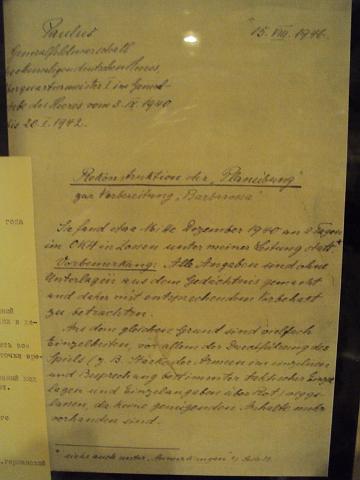 Paulus
15. VIII. 1946.
Generalfeldmarschall
ehemaligen deutschen Heeres,
Oberquartiermeister I im General-
stabe des Heeres vom 3.IX.1940
bis 20.I.1942.
Rekonstruktion der "Planübung"
zur Vorbereitung "Barbarossa"
Sie fand etwa Mitte Dezember 1940 an 2 Tagen
im OKH in Zossen unter meiner Leitung statt.*
Vorbemerkung: Alle Angaben sind ohne
Unterlagen aus dem Gedächtnis gemacht
und daher mit entsprechendem Vorbehalt
zu betrachten.
Aus dem gleichen Grund sind vielfach
Einzelheiten, vor allem der Durchführung des
Spiels (z.B. Stärke der Armeen im einzelnen
und Besprechung bestimmter taktischer Einzel-
lagen und Einzelangaben über Rot) weggelassen,
da keine genügenden Anhalte mehr
vorhanden sind.
* siehe auch unter "Anmerkungen"
года
ной